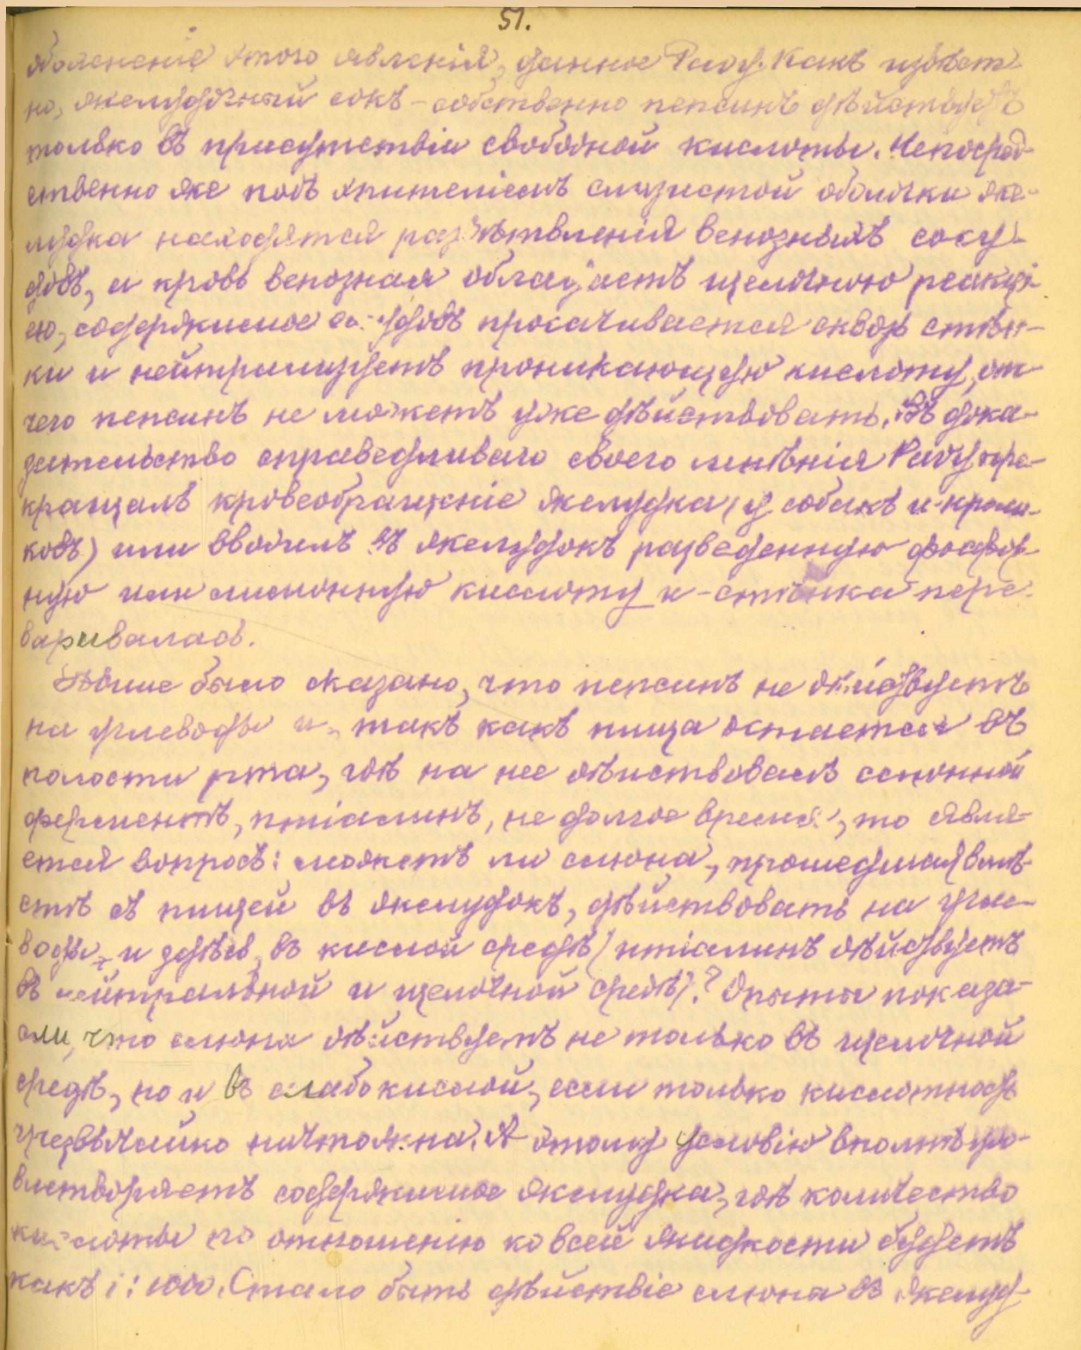 51.
объясненіе этого явленія, данное Pavy. Какъ извѣст-
но, желудочный сокъ – собственно пепсинъ дѣйствуетъ
только въ присутствіи свободной кислоты. Непосред-
ственно же подъ эпителіемъ слизистой оболочки же-
лудка находятся развѣтвленія венозныхъ сосу-
довъ, и кровь венозная обладаетъ щелочною реакці-
ею, содержимое сосудовъ просачивается сквозь стѣн-
ки и нейтрализуетъ проникающую кислоту, от-
чего пепсинъ не можетъ уже дѣйствовать. Въ дока-
зательство справедливаго своего мнѣнія Pavy пре-
кращалъ кровеобращеніе желудка (у собакъ и кроли-
ковъ) или вводилъ въ желудокъ разведенную фосфор-
ную или лимонную кислоту и – стѣнка пере-
варивалась.
Выше было сказано, что пепсинъ не дѣйствуетъ
на углеводы и, такъ какъ пища остается въ
полости рта, гдѣ на нее дѣйствовалъ слюнной
ферментъ, птіалинъ, не долгое время, то явля-
ется вопросъ: можетъ ли слюна, прошедшая вмѣ-
стѣ съ пищей въ желудокъ, дѣйствовать на угле-
воды и здѣсь, въ кислой средѣ (птіалинъ дѣйствуетъ
въ нейтральной и щелочной средѣ)? Опыты показа-
ли, что слюна дѣйствуетъ не только въ щелочной
средѣ, но и въ слабокислой, если только кислотность
чрезвычайно ничтожна. А этому условію вполнѣ удо-
влетворяетъ содержимое желудка, гдѣ количество
кислоты по отношенію ко всей жидкости будетъ
какъ 1:1000. Стало быть дѣйствіе слюны въ желуд-